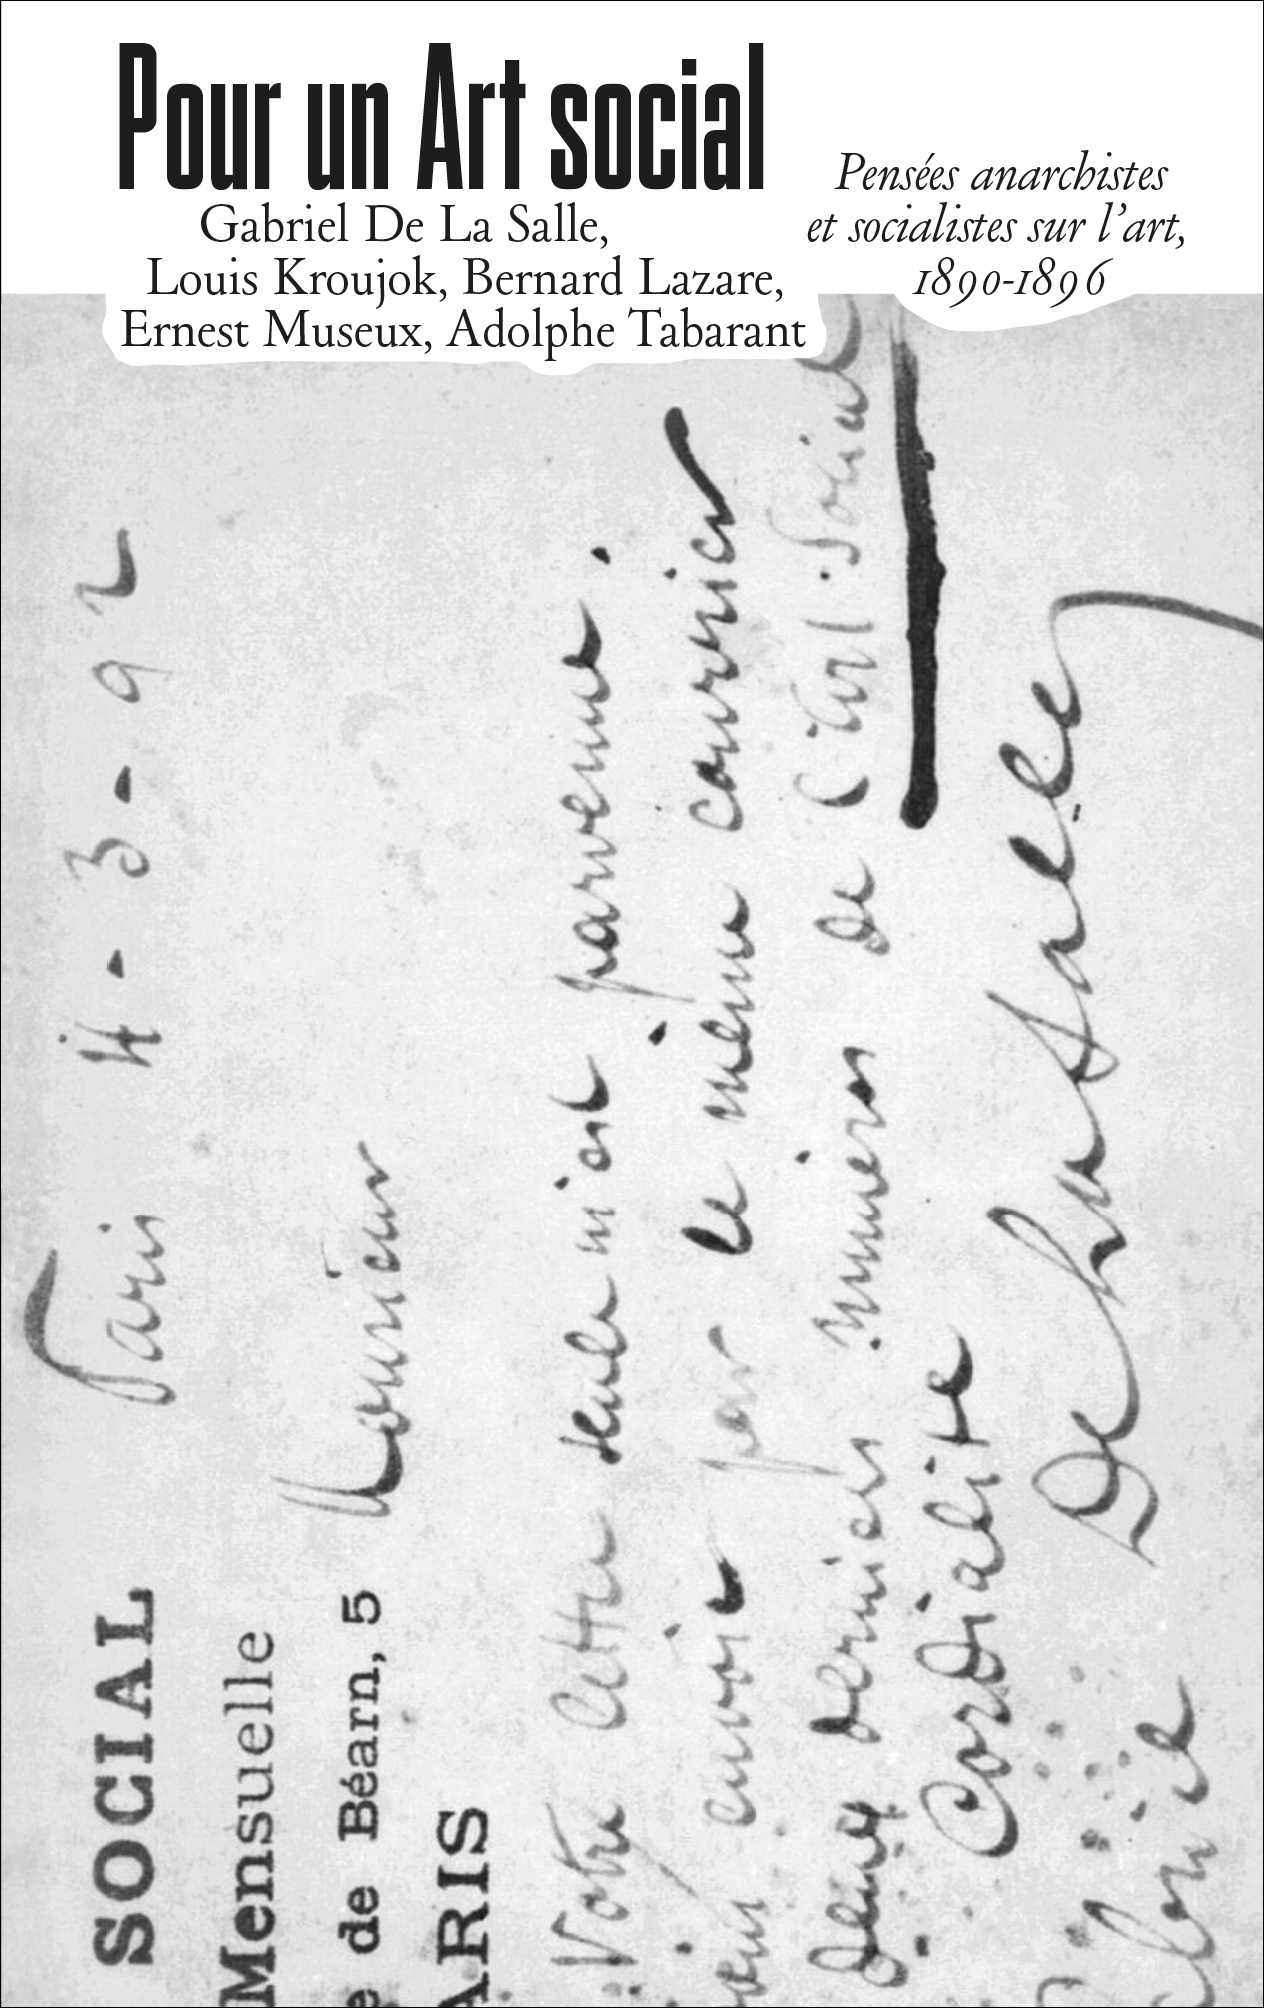 Pour un Art social
Gabriel De La Salle,
Louis Kroujok, Bernard Lazare,
Ernest Museux, Adolphe Tabarant
Pensées anarchistes
et socialistes sur l'art,
1890-1896
SOCIAL
Paris 4-3-92
Mensuelle
e de Béarn, 5
Monsieur
ARIS
Votre lettre seule m'est parvenue.
envoie par le même courrier
deux derniers numéros de l'Art Social
Cordialité
De la Salle